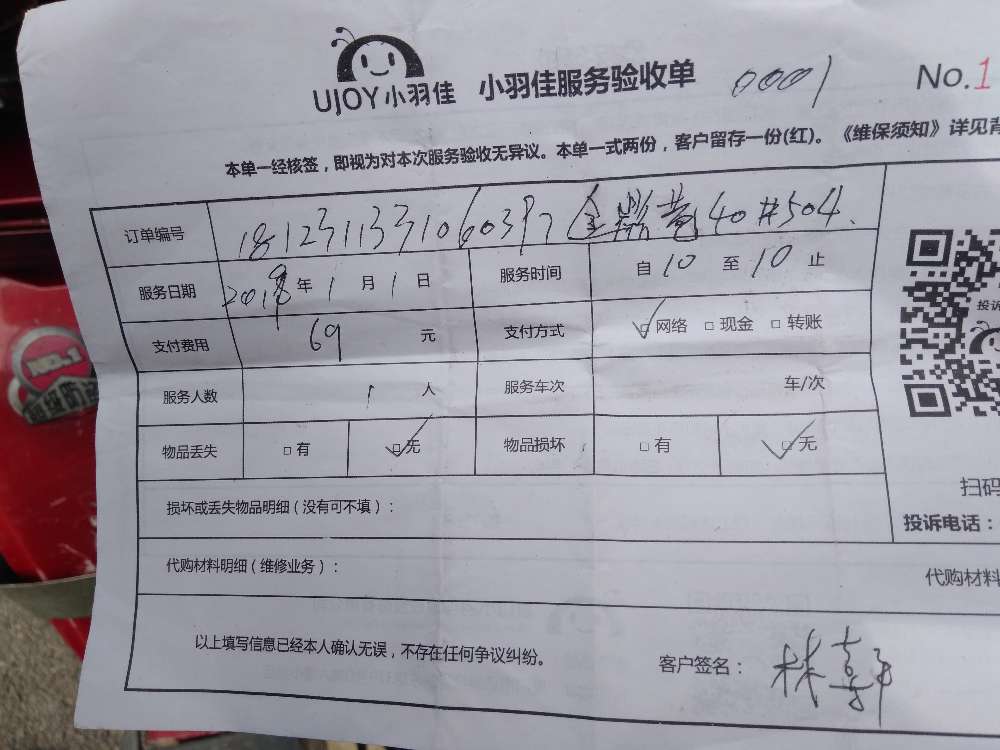 UJOY小羽佳 小羽佳服务验收单 0001 No.1
本单一经核签，即视为对本次服务验收无异议。本单一式两份，客户留存一份(红)。《维保须知》详见背
订单编号 40#504.
服务日期 2019年1月1日 服务时间 自10至10止
支付费用 69 元 支付方式 ☑网络 □现金 □转账
服务人数 1 人 服务车次 车/次
物品丢失 □有 ☑无 物品损坏 □有 ☑无
损坏或丢失物品明细（没有可不填）：
代购材料明细（维修业务）：
以上填写信息已经本人确认无误，不存在任何争议纠纷。
客户签名：林
投诉
扫码
投诉电话：
代购材料
NO.1